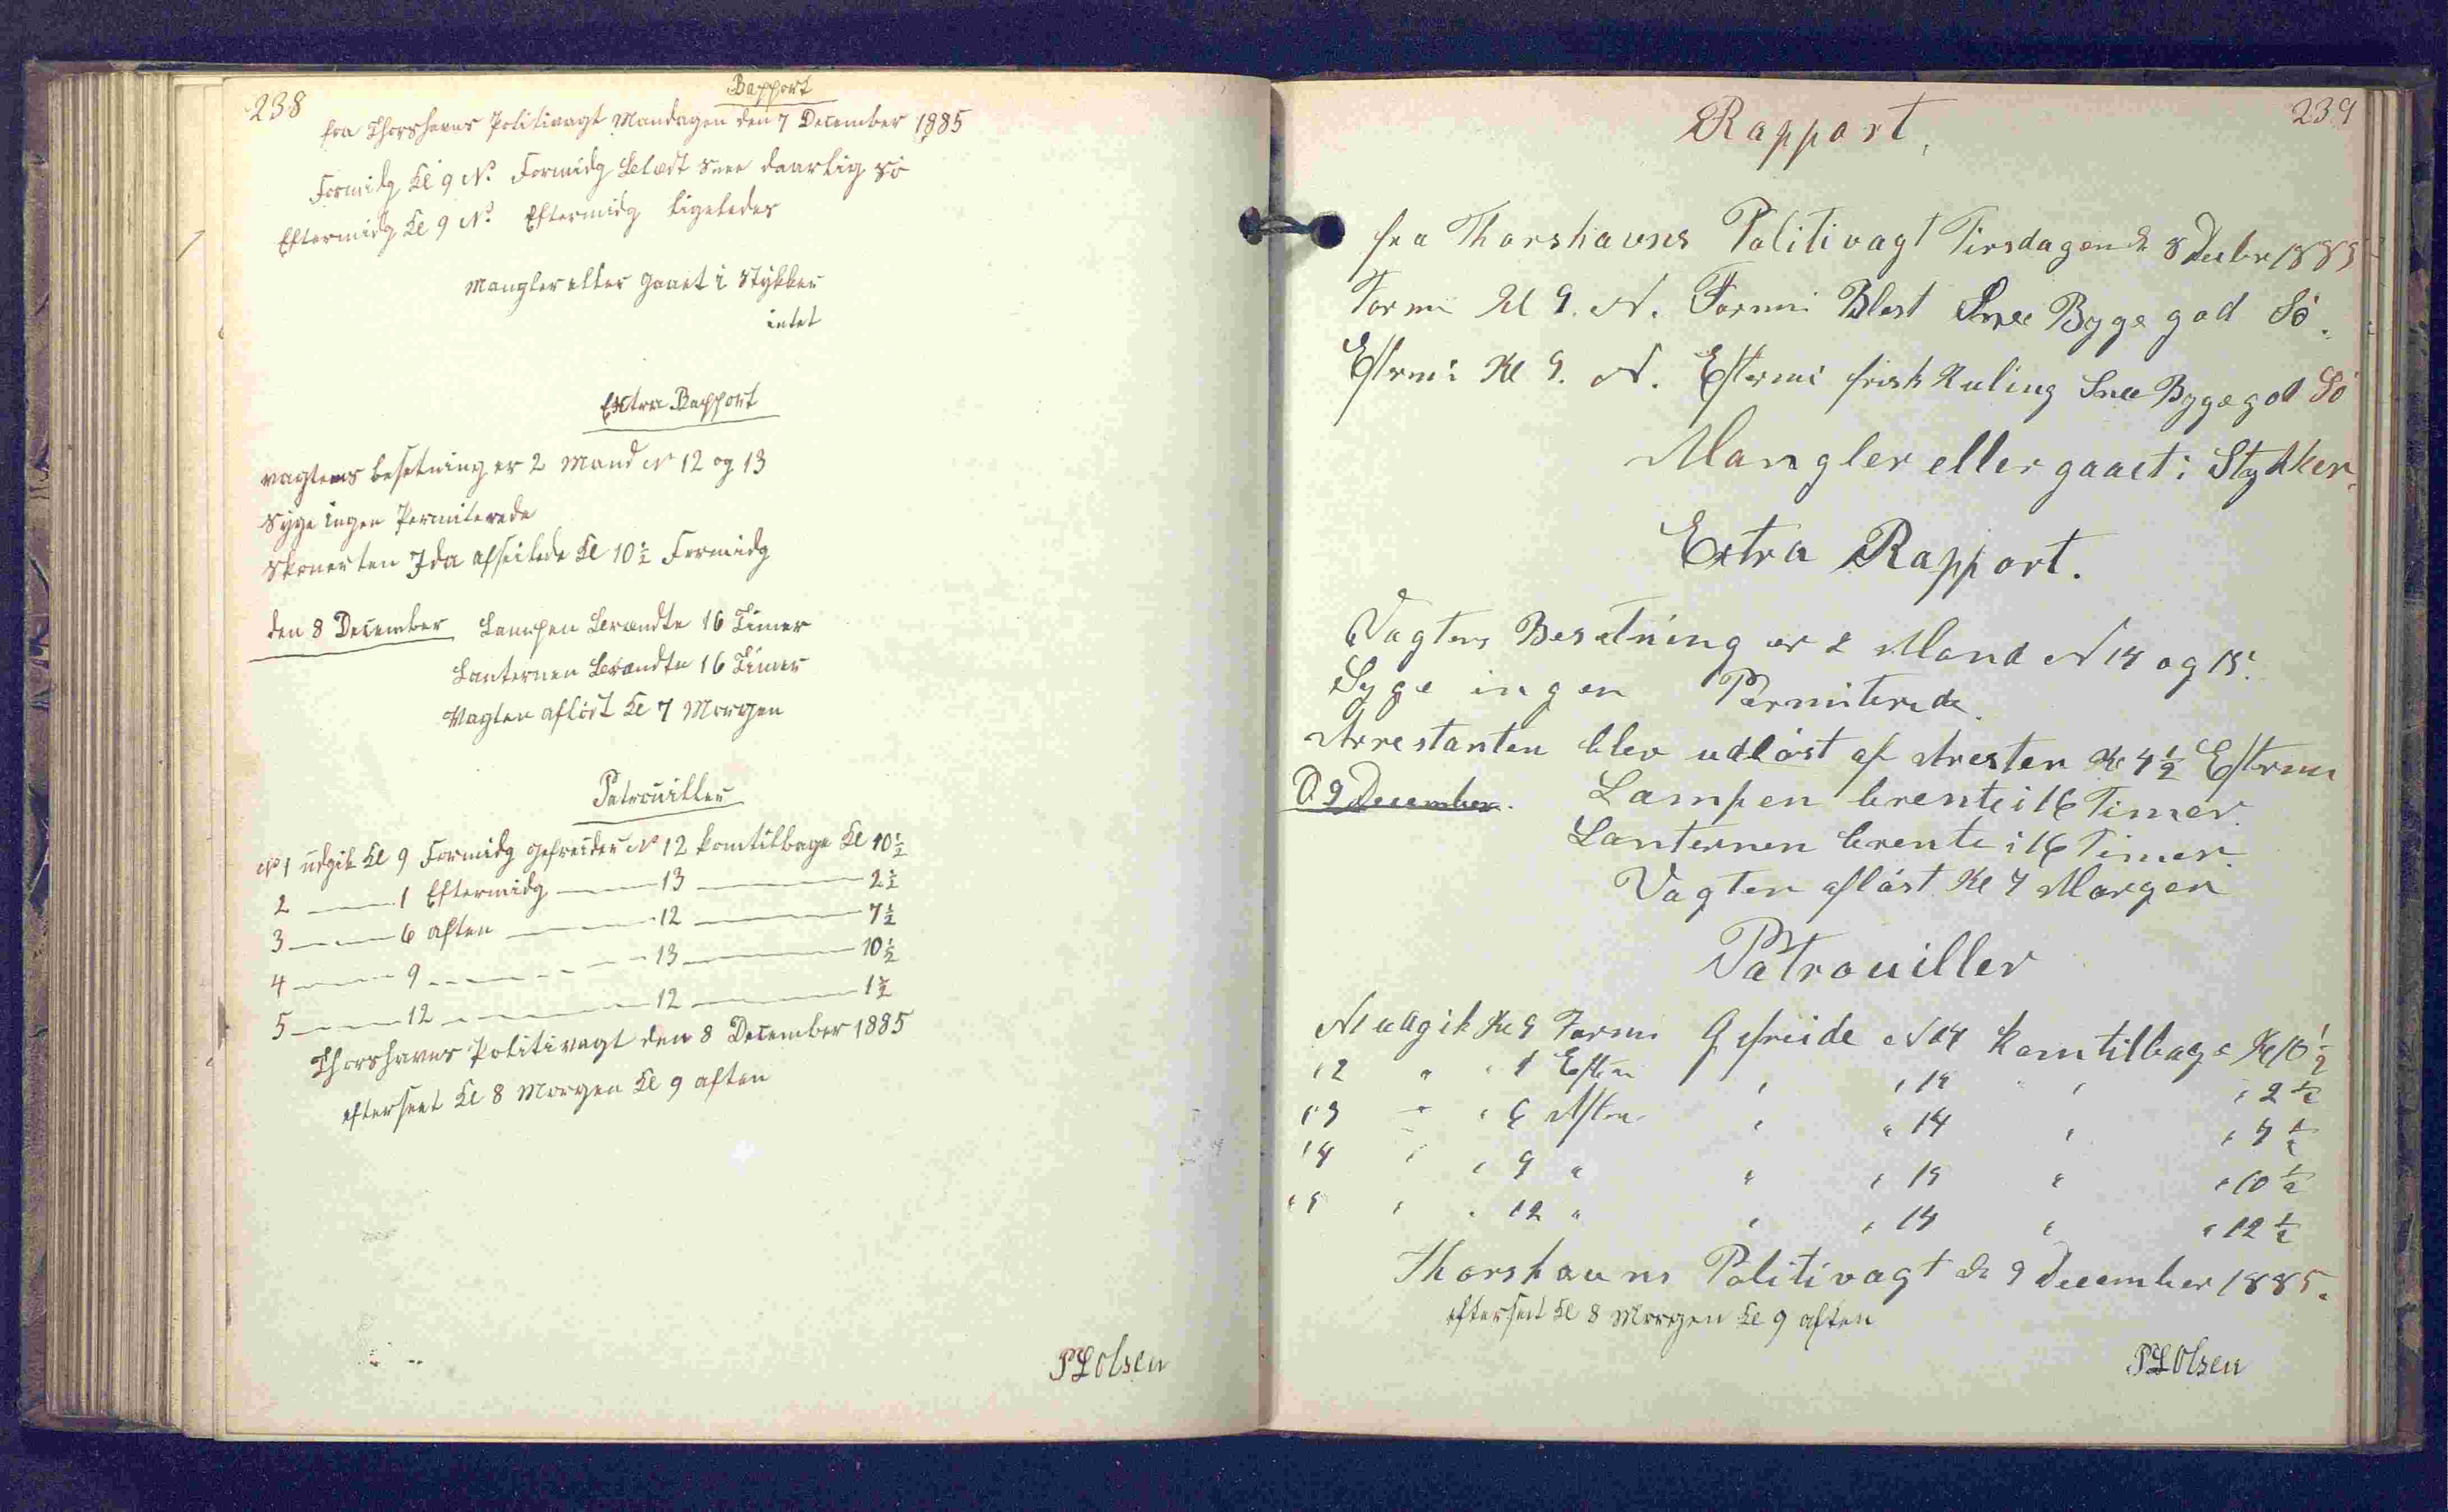 238
Rapport
fra Thorshavns Politivagt Mandagen den 7 December 1885
Formidg Kl 9 N. Formidg Blæst Snee daarlig Sö
Eftermidg Kl 9 N. Eftermidg ligeledes
Mangler eller gaaet i Stykker
intet
Extra Rapport
vagtens besetning er 2 Mand No 12 og 13
Syge ingen Permiterede
Skonerten Ida afseilede Kl 10½ Formidg
den 8 December Lampen brændte 16 Timer
Lanternen brændte 16 Timer
Vagten aflöst Kl 7 Morgen
Patrouiller
No 1 udgik Kl 9 Formidg gefreider No 12 kom tilbage Kl 10½
2 — 1 Eftermidg — 13 — 2½
3 — 6 aften — 12 — 7½
4 — 9 — 13 — 10½
5 — 12 — 12 — 1½
Thorshavns Politivagt den 8 December 1885
efterseet Kl 8 Morgen Kl 9 aften
PLOlsen
239
Rapport,
fra Thorshavns Politivagt Tirsdagen d. 8 Decbr 1885
Formi Kl 9. N. Formi Blest Snee Byge god Sö.
Efterm: Kl 9. N. Eftermi frisk Kuling Snee Byge god Sö
Mangler eller gaaet i Stykker.
Extra Rapport.
Vagtens Besetning er 2 Mand N 14 og 15.
Syge ingen Permiterede.
Arrestanten blev udlöst af Aresten Kl 4½ Efterm
D. 9 December. Lampen brente i 16 Timer.
Lanternen brente i 16 Timer.
Vagten aflöst Kl 7 Morgen
Patrouiller
N1 udgik Kl 9 Formi Gefreide N 14 kom tilbage Kl 10½
" 2 " " 1 Efterm " " 15 " " 2½
" 3 " " 6 Aften " " 14 " " 7½
" 4 " " 9 " " " 15 " " 10½
" 5 " " 12 " " " 14 " " 12½
Thorshavns Politivagt d. 9 December 1885.
efterseet Kl 8 Morgen Kl 9 aften
PLOlsen